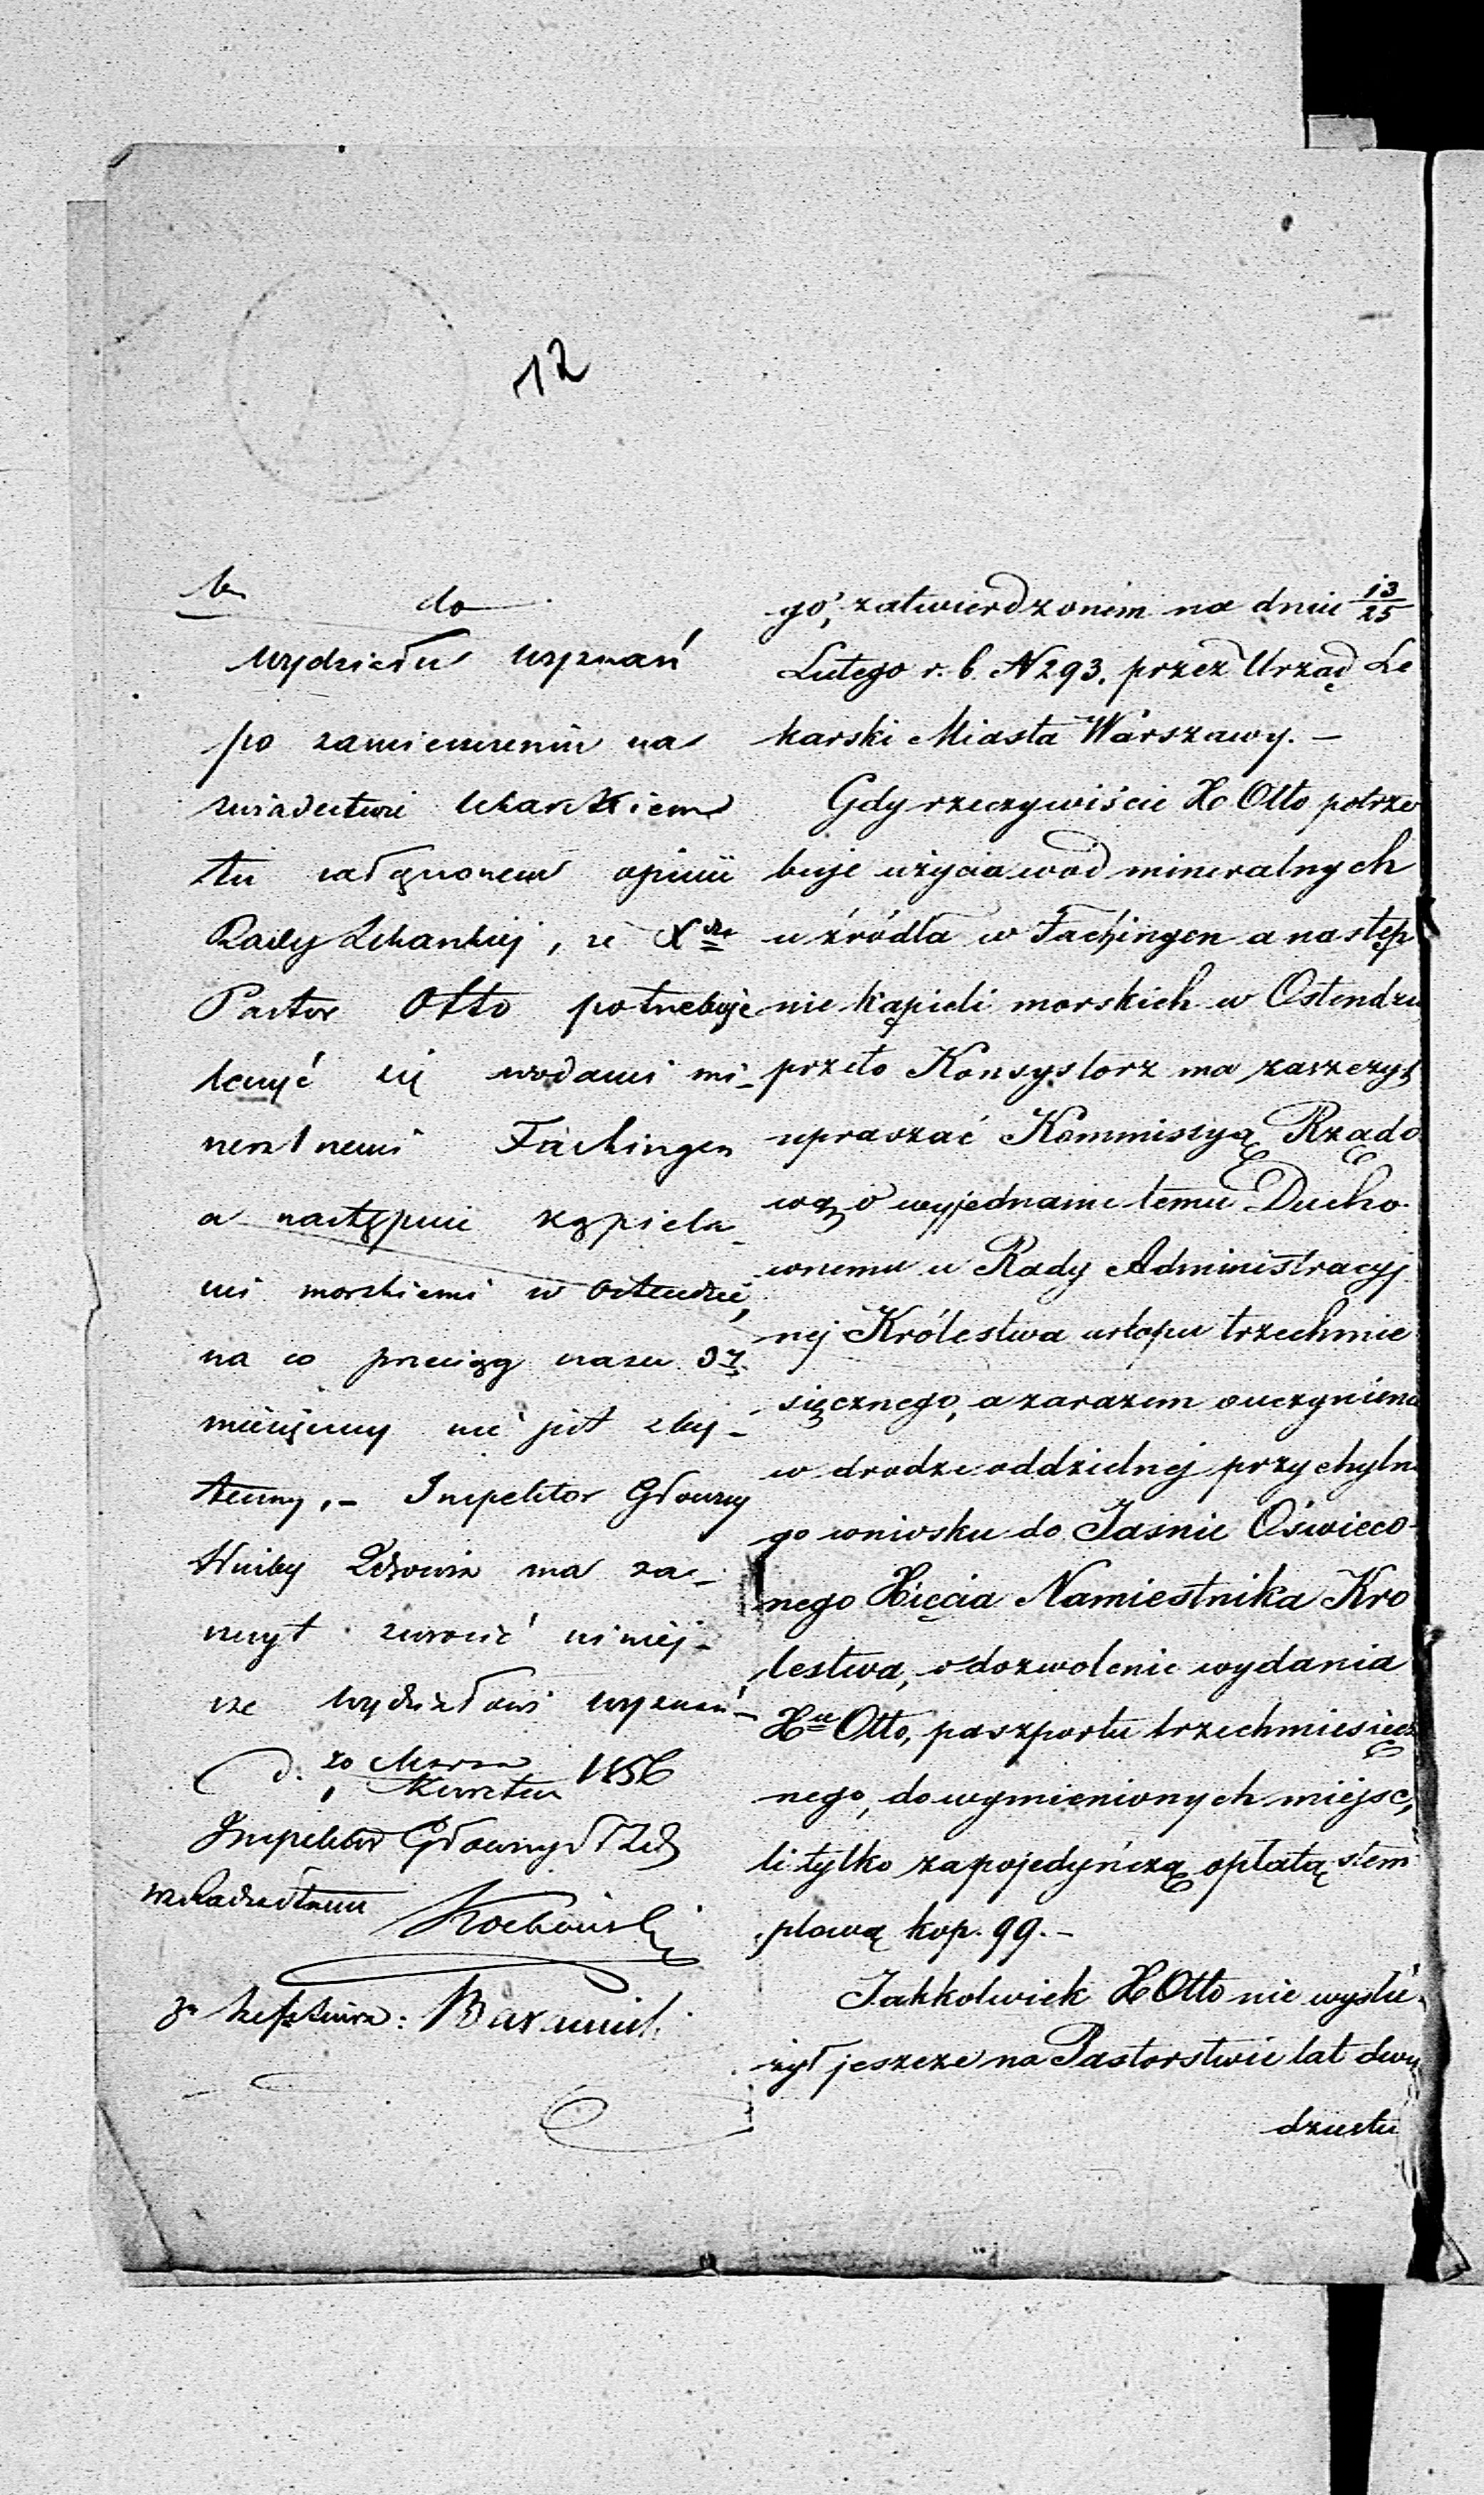 12
do
Wydziału Wyznań
po zamieszczeniu na
świadectwie lekarskiem
tu załączonem opinii
Rady Lekarskiej, że Xdz
Pastor Otto potrzebuje
leczyć się wodami mi-
neralnemi Fachingen
a następnie kąpiela-
mi morskiemi w Ostendzie,
na co przeciąg czasu 3ch
miesięczny nie jest zby-
teczny. – Inspektor Główny
Służby Zdrowia ma za-
szczyt zwrócić niniej-
sze Wydziałowi Wyznań –
d. 20 Marca
1 Kwietnia 1856
Inspektor Główny Sł Zd
za Szefa Biura:
go, zatwierdzonem na dniu 13/25
Lutego r. b. N 293. przez Urząd Le
karski Miasta Warszawy. –
Gdy rzeczywiście X Otto potrze
buje użycia wód mineralnych
u źródła w Fachingen a następ
nie kąpieli morskich w Ostendzie
przeto Konsystorz ma zaszczyt
upraszać Kommissyą Rządo
wą o wyjednanie temu Ducho
wnemu u Rady Administracyj
nej Królestwa urlopu trzechmie
sięcznego, a zarazem o uczynienie
w drodze oddzielnej przychylne
go wniosku do Jaśnie Oświeco-
nego Xięcia Namiestnika Kro
lestwa, o dozwolenie wydania
Xu Otto, paszportu trzechmiesięcz
nego, do wymienionych miejsc,
li tylko za pojedyńczą opłatą stem
plową kop. 99. –
Jakkolwiek X Otto nie wysłu-
żył jeszcze na Pastorstwie lat dwu
dziestu